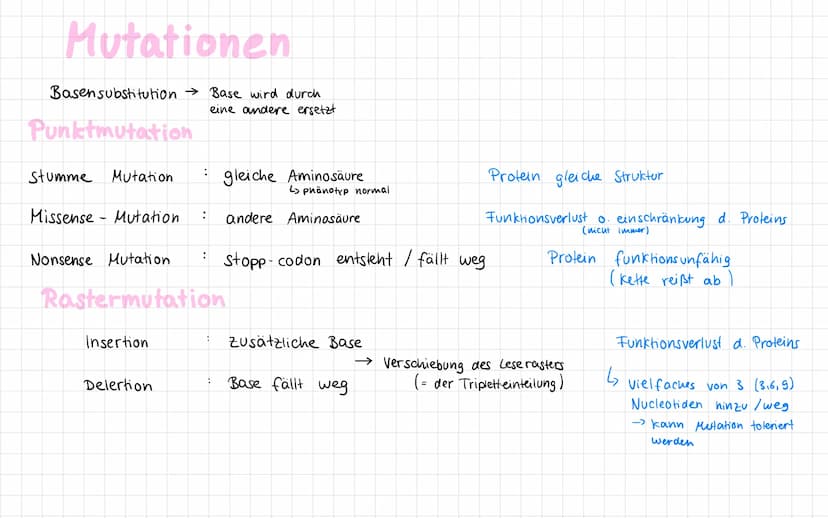 Mutationen
Basensubstitution → Base wird durch
eine andere ersetzt
Punktmutation
Stumme Mutation : gleiche Aminosäure Protein gleiche Struktur
↳ phänotyp normal
Missense-Mutation : andere Aminosäure Funktionsverlust o. einschränkung d. Proteins
(nicht immer)
Nonsense Mutation : Stopp-codon entsteht / fällt weg Protein funktionsunfähig
(Kette reißt ab)
Rastermutation
Insertion : zusätzliche Base Funktionsverlust d. Proteins
→ Verschiebung des Leserasters
Delertion : Base fällt weg (= der Tripletteinteilung) ↳ Vielfaches von 3 (3,6,9)
Nucleotiden hinzu/weg
→ kann Mutation toleriert
werden